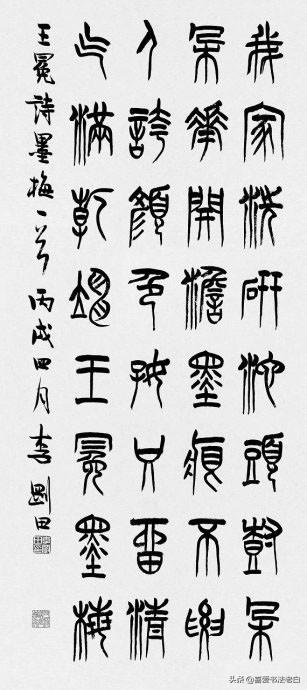 我家洗研池頭樹朵
朵華開澹墨痕不要
人誇顏色好只留清
气滿乾坤王冕墨梅
王冕詩墨梅一首 丙戌四月 李剛田
头条 @喜爱书法老白